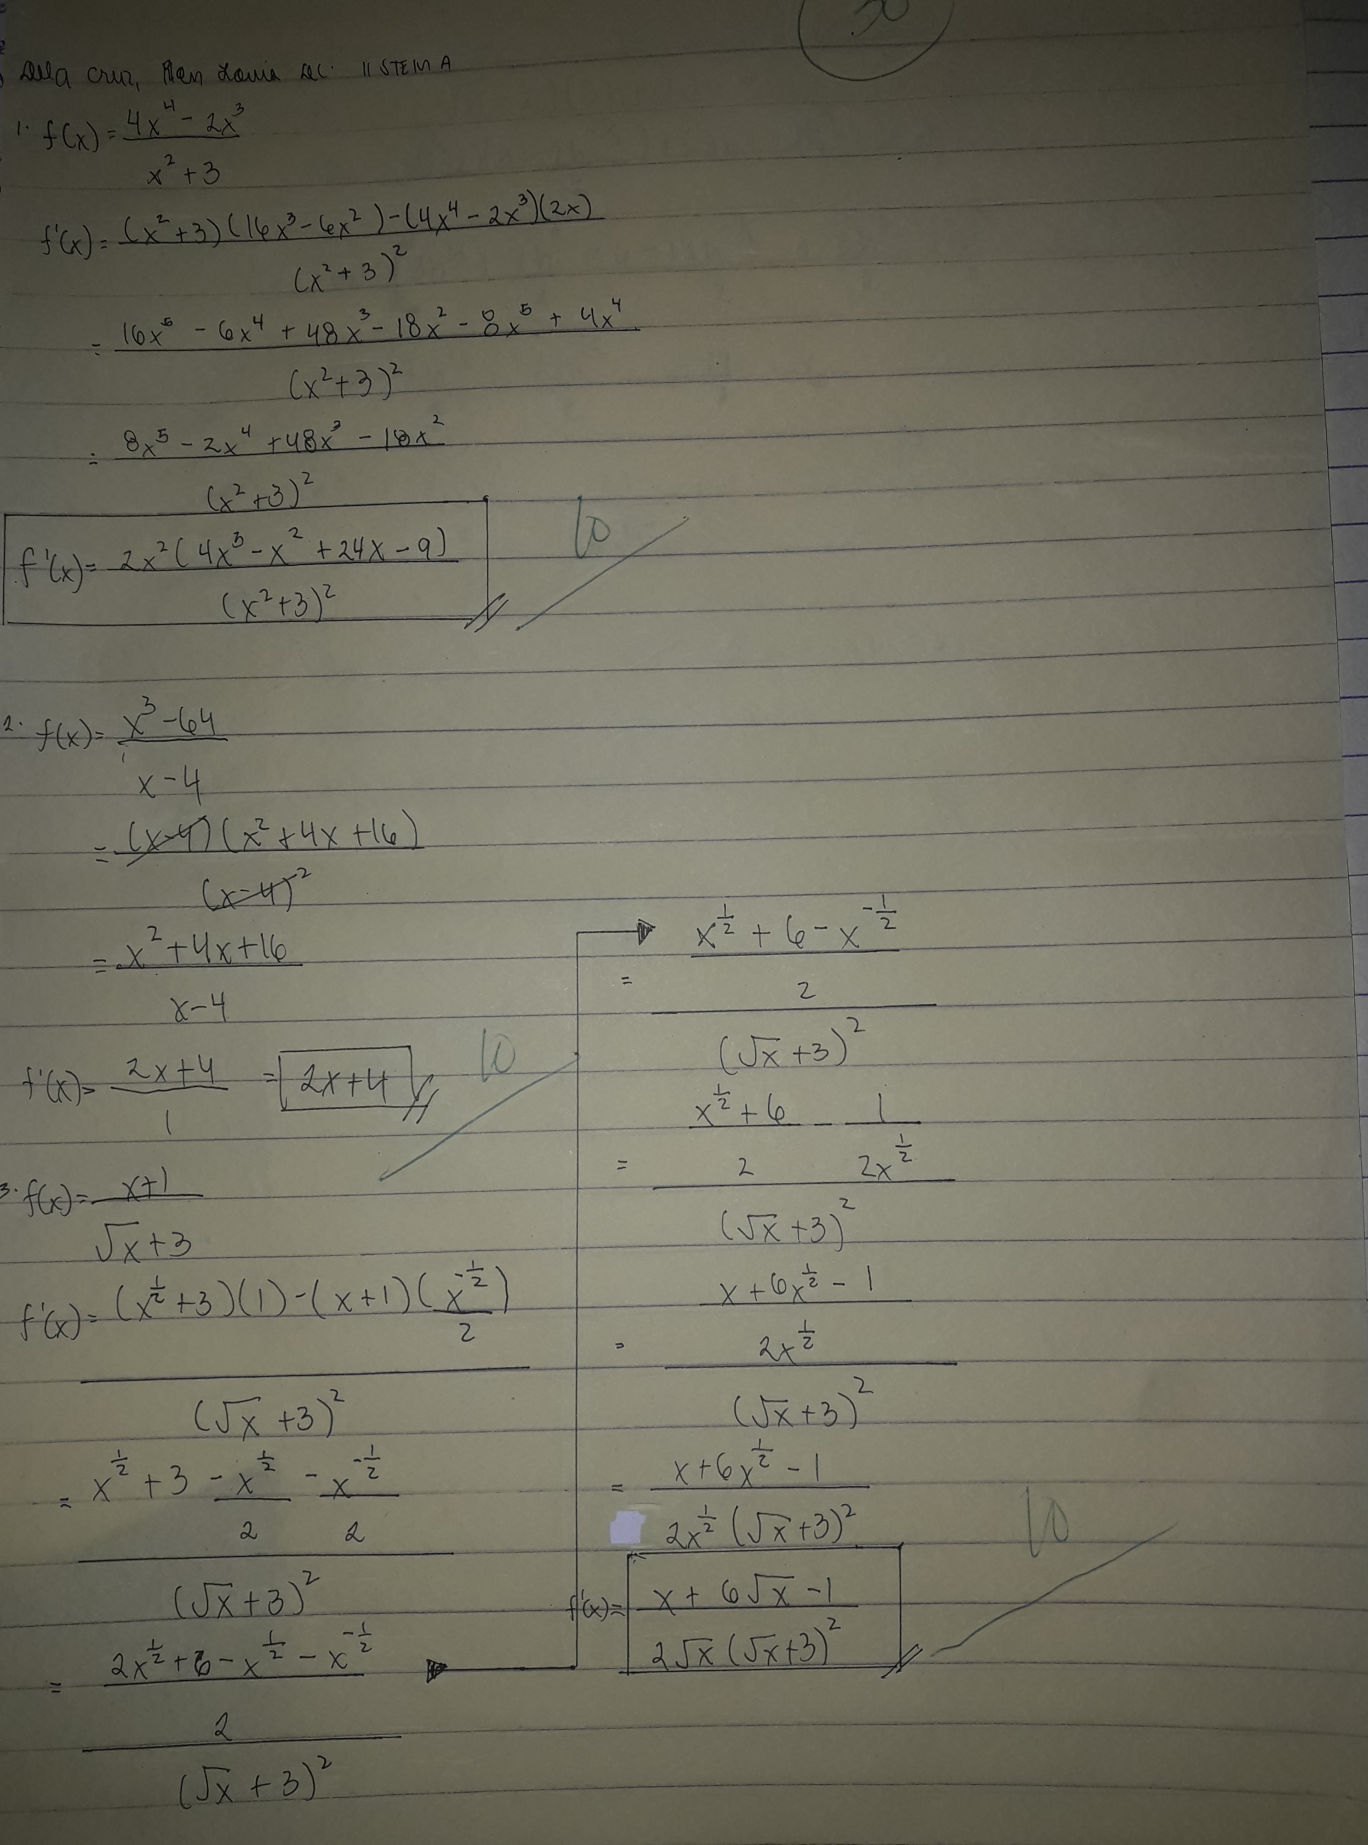 30
Dela Cruz, 11 STEM A
1. f(x) = (4x⁴ - 2x³)/(x² + 3)
f'(x) = ((x² + 3)(16x³ - 6x²) - (4x⁴ - 2x³)(2x))/(x² + 3)²
= (16x⁵ - 6x⁴ + 48x³ - 18x² - 8x⁵ + 4x⁴)/(x² + 3)²
= (8x⁵ - 2x⁴ + 48x³ - 18x²)/(x² + 3)²
f'(x) = (2x²(4x³ - x² + 24x - 9))/(x² + 3)² 10
2. f(x) = (x³ - 64)/(x - 4)
= ((x-4)(x² + 4x + 16))/(x-4)²
= (x² + 4x + 16)/(x - 4)
f'(x) = (2x + 4)/1 = 2x + 4 10
3. f(x) = (x+1)/(√x + 3)
f'(x) = ((x^½ + 3)(1) - (x + 1)(x^-½/2))/(√x + 3)²
= (x^½ + 3 - x^½/2 - x^-½/2)/(√x + 3)²
= ((2x^½ + 6 - x^½ - x^-½)/2)/(√x + 3)²
= ((x^½ + 6 - x^-½)/2)/(√x + 3)²
= ((x^½ + 6)/2 - 1/(2x^½))/(√x + 3)²
= ((x + 6x^½ - 1)/(2x^½))/(√x + 3)²
= (x + 6x^½ - 1)/(2x^½(√x + 3)²)
f'(x) = (x + 6√x - 1)/(2√x(√x + 3)²) 10